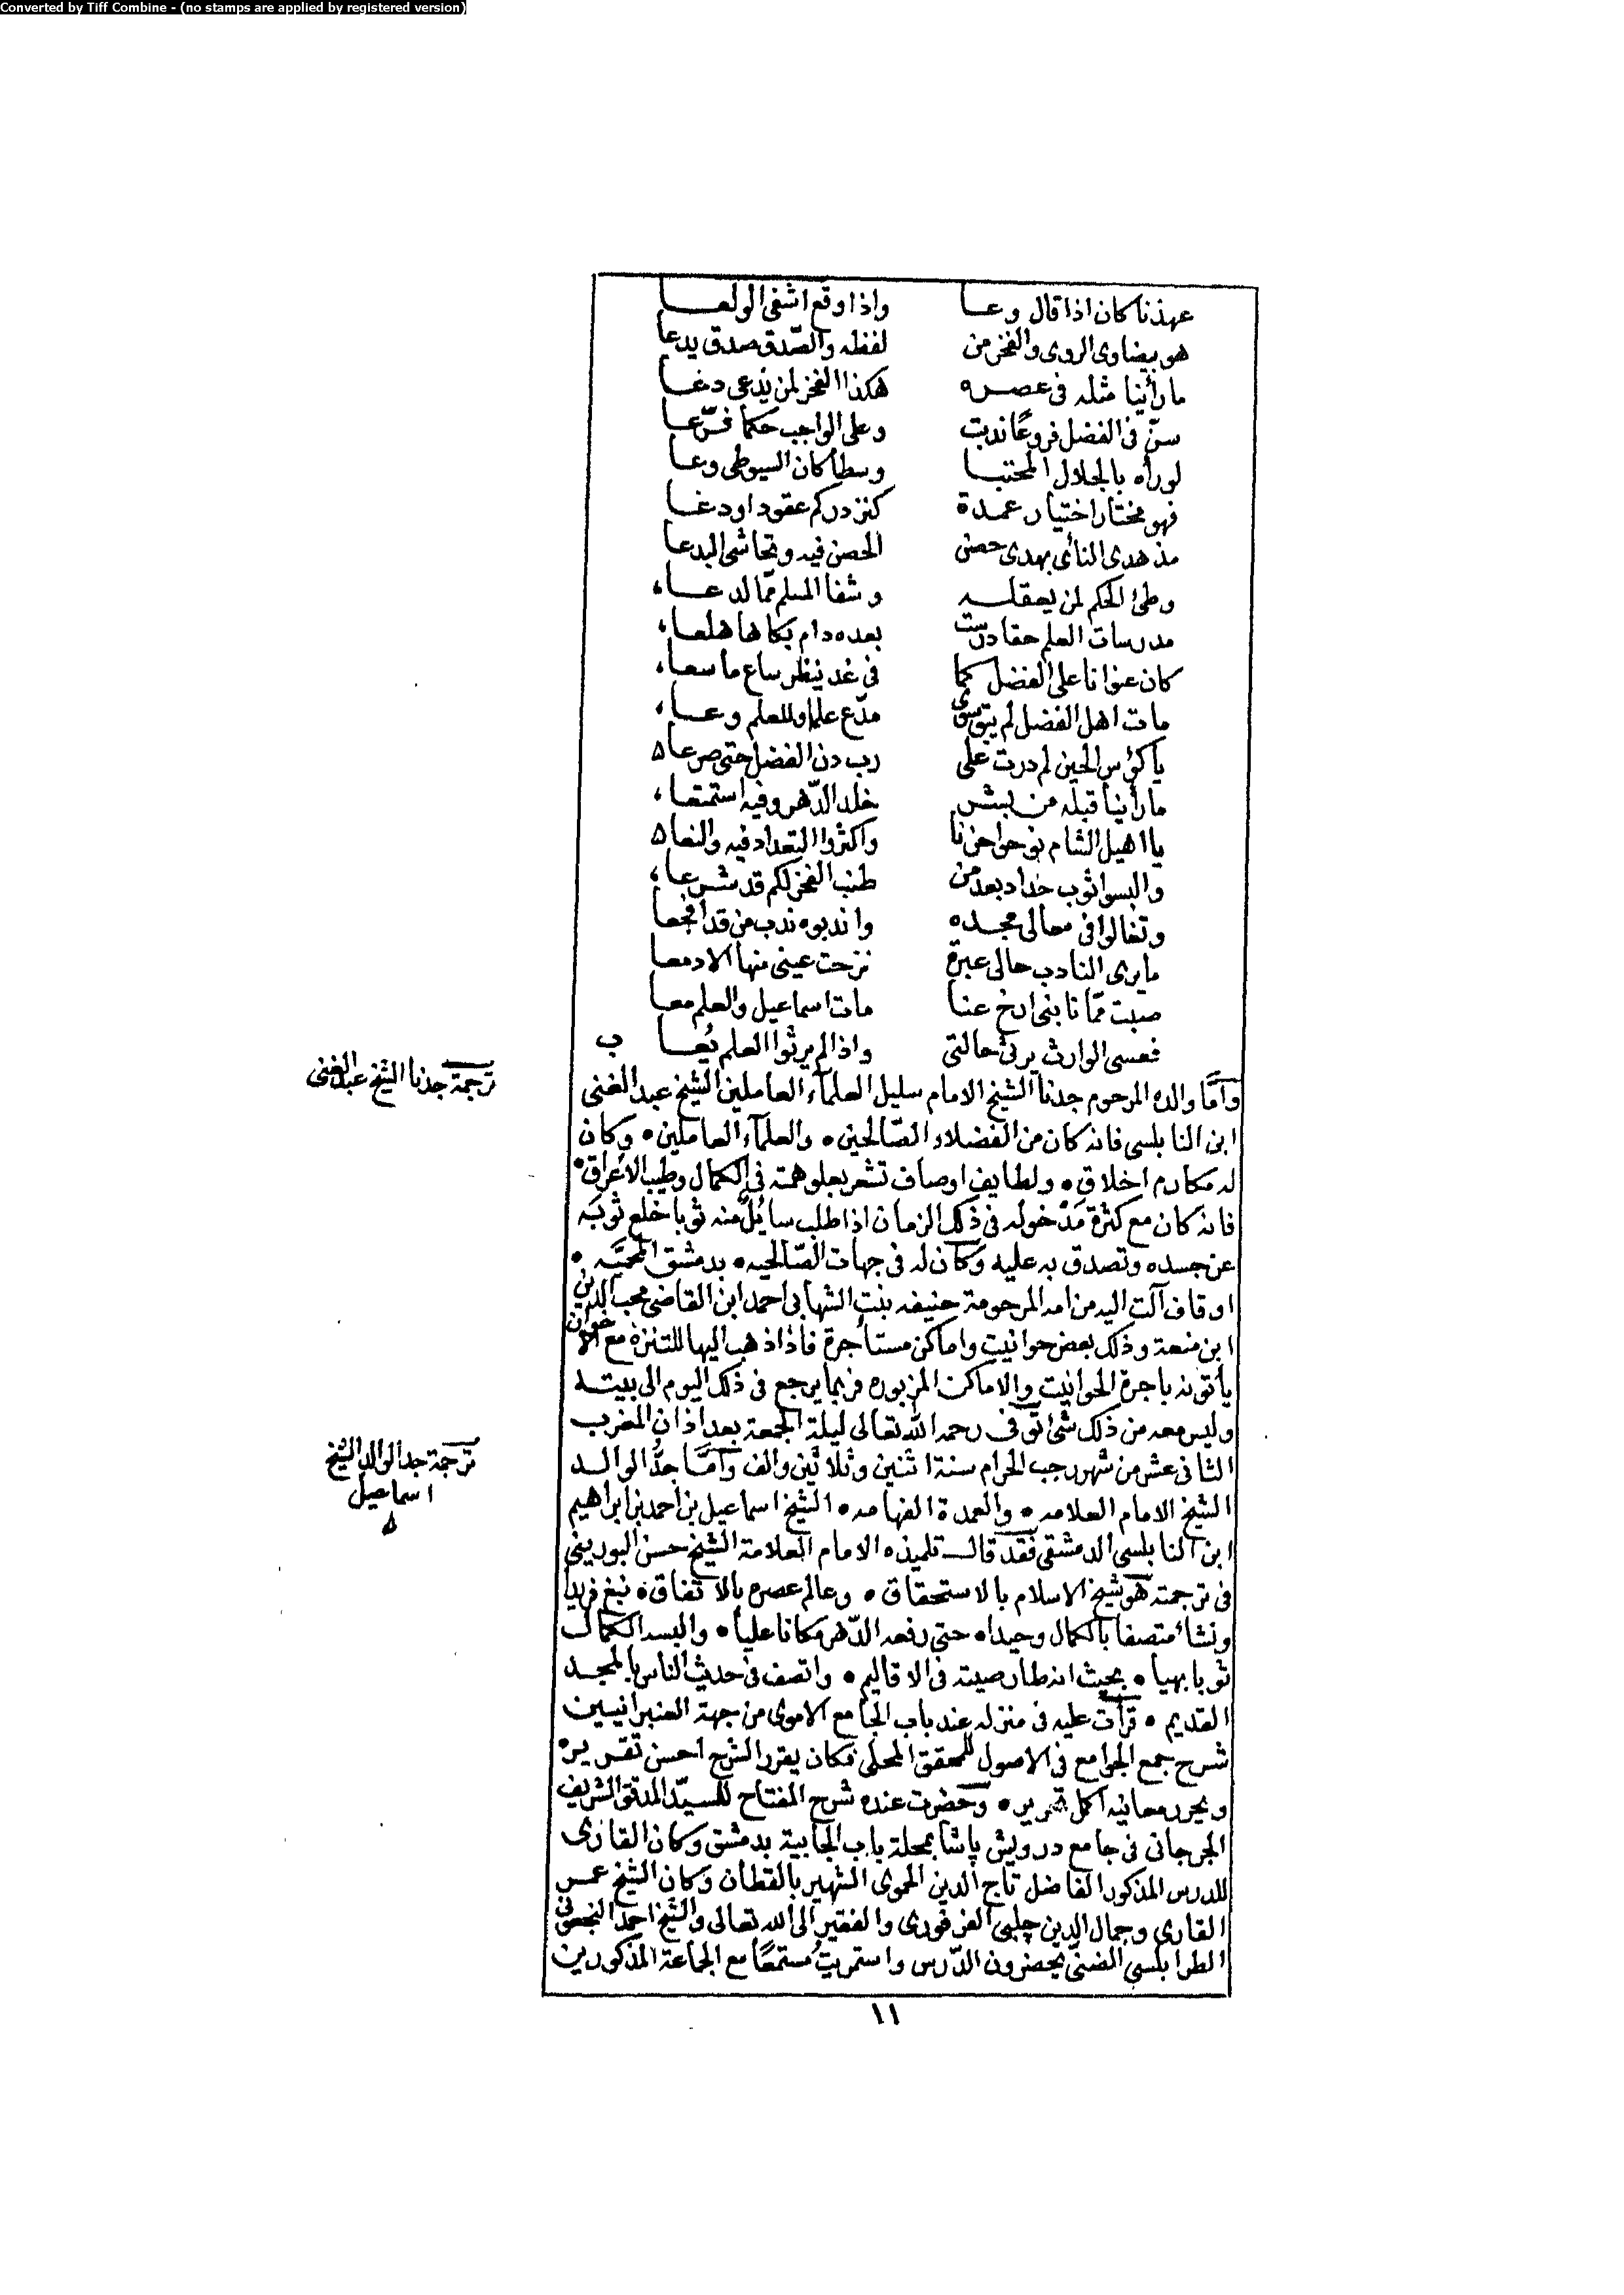 Converted by Tiff Combine - (no stamps are applied by registered version)
عهدنا كان اذا قال وعا واذا وقع اشفى الولعا
هو بيضاوى الروى والفخر من لفظه والصّدق صدق يدعا
ما رأينا مثله فى عصره هكذا الفخر لمن يدعى دعا
سنّ فى الفضل فروعًا ندبت وعلى الواجب حكما فرّعا
لو رأه بالجلال المحتبا وسطا كان السيوطى وعا
فهو مختار اختيار عمدة كنز در كم عقود اودعا
مذ هدى النأى بهدى حصن الحصن فيه وتحاشى البدعا
وطئ الحكم لمن يعقله وشفا المسلم ممّا لدعا
مدرسات العلم حقا درست بعده دام بكاها هلعا
كان عنوانا على الفضل كما فى غد ينظر ساع ما سعا
مات اهل الفضل لم يبق سوى مدّع علما وللعلم وعا
يا كؤس الحين لم درت على رب دن الفضل حتى صرعا
ما رأينا قبله من بشر خلد الدّهر وفيه استمتعا
يا اهيل الشام نوحوا حزنا واكثروا التعداد فيه والنعا
والبسوا ثوب حداد بعد من طنب الفخر لكم قد شرعا
وتغالوا فى معالى مجده واندبوه ندب من قد افجعا
ما يرى النادب حالى عبرة نزحت عينى منها الادمعا
صبت ممّا نابنى ارخ عنا مات اسماعيل والعلم معا
فعسى الوارث يرثى حالتى واذا لم يرثوا العلم نُعا ب
ترجمة جدنا الشيخ عبد الغنى
وامّا والده المرحوم جدنا الشيخ الامام سليل العلمآء العاملين الشيخ عبد الغنى
ابن النابلسى فانه كان من الفضلاء الصّالحين • والعلمآء العاملين • وكان
له مكارم اخلاق • ولطايف اوصاف تشعر بعلو همته فى الكمال وطيب الاعراق •
فانه كان مع كثرة مَدْخوله فى ذلك الزمان اذا طلب سايُلٌ منه ثوبا خلع ثوبَه
عن جسده وتصدق به عليه وكان له فى جهات الصّالحيه • بدمشق المحميّه •
اوقاف آلت اليه من امه المرحومة حنيفه بنت الشهابى احمد ابن القاضى محب الدين
ابن منعة وذلك بعض حوانيت واماكن مستأجرة فاذا ذهب اليها للتنزه مع الاخوان
يأتونه باجرة الحوانيت والاماكن المزبوره فربما يرجع فى ذلك اليوم الى بيته
وليس معه من ذلك شئ توفى رحمه الله تعالى ليلة الجمعة بعد اذان المغرب
الثانى عشر من شهر رجب الحرام سنة اثنين وثلاثين والف وامّا جدُّ الوالد
ترجمة جد الوالد الشيخ
اسماعيل
الشيخ الامام العلامه • والعمدة الفهامه • الشيخ اسماعيل بن احمد بن ابراهيم
ابن النابلسى الدمشقى فقد قال تلميذه الامام العلامة الشيخ حسن البورينى
فى ترجمته هو شيخ الاسلام بالاستحقاق • وعالم عصره بالاتفاق • نبغ فريدا
ونشأ متصفا بالكمال وحيدا • حتى رفعه الدّهر مكانا عليا • والبسه الكمال
ثوبا بهيا • بحيث انه طار صيته فى الاقاليم • واتصف فى حديث الناس بالمجد
القديم • قرأت عليه فى منزله عند باب الجامع الاموى من جهة العنبرانيين
شرح جمع الجوامع فى الاصول للمحقق المحلى فكان يقرر الشرح احسن تقرير •
ويحرر معانيه اكمل تحرير • وحضرت عنده شرح المفتاح للسيّد المدقق الشريف
الجرجانى فى جامع درويش پاشا بمحلة باب الجابية بدمشق وكان القارى
للدرس المذكور الفاضل تاج الدين الحموى الشهير بالقطان وكان الشيخ عمر
القارى وجمال الدين چلبى الفرفورى والفقير الى الله تعالى والشيخ احمد
الطرابلسى يحضرون الدّرس واستمريتُ مستمعًا مع الجماعة المذكورين
١١